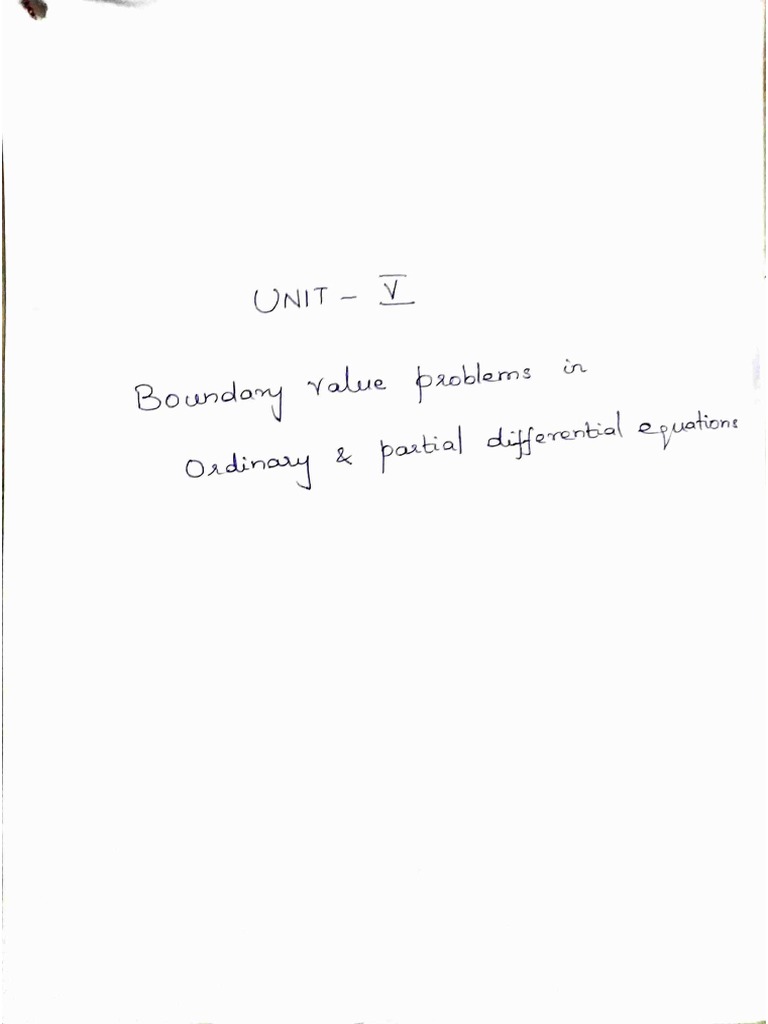 UNIT - V
Boundary value problems in
Ordinary & partial differential equations